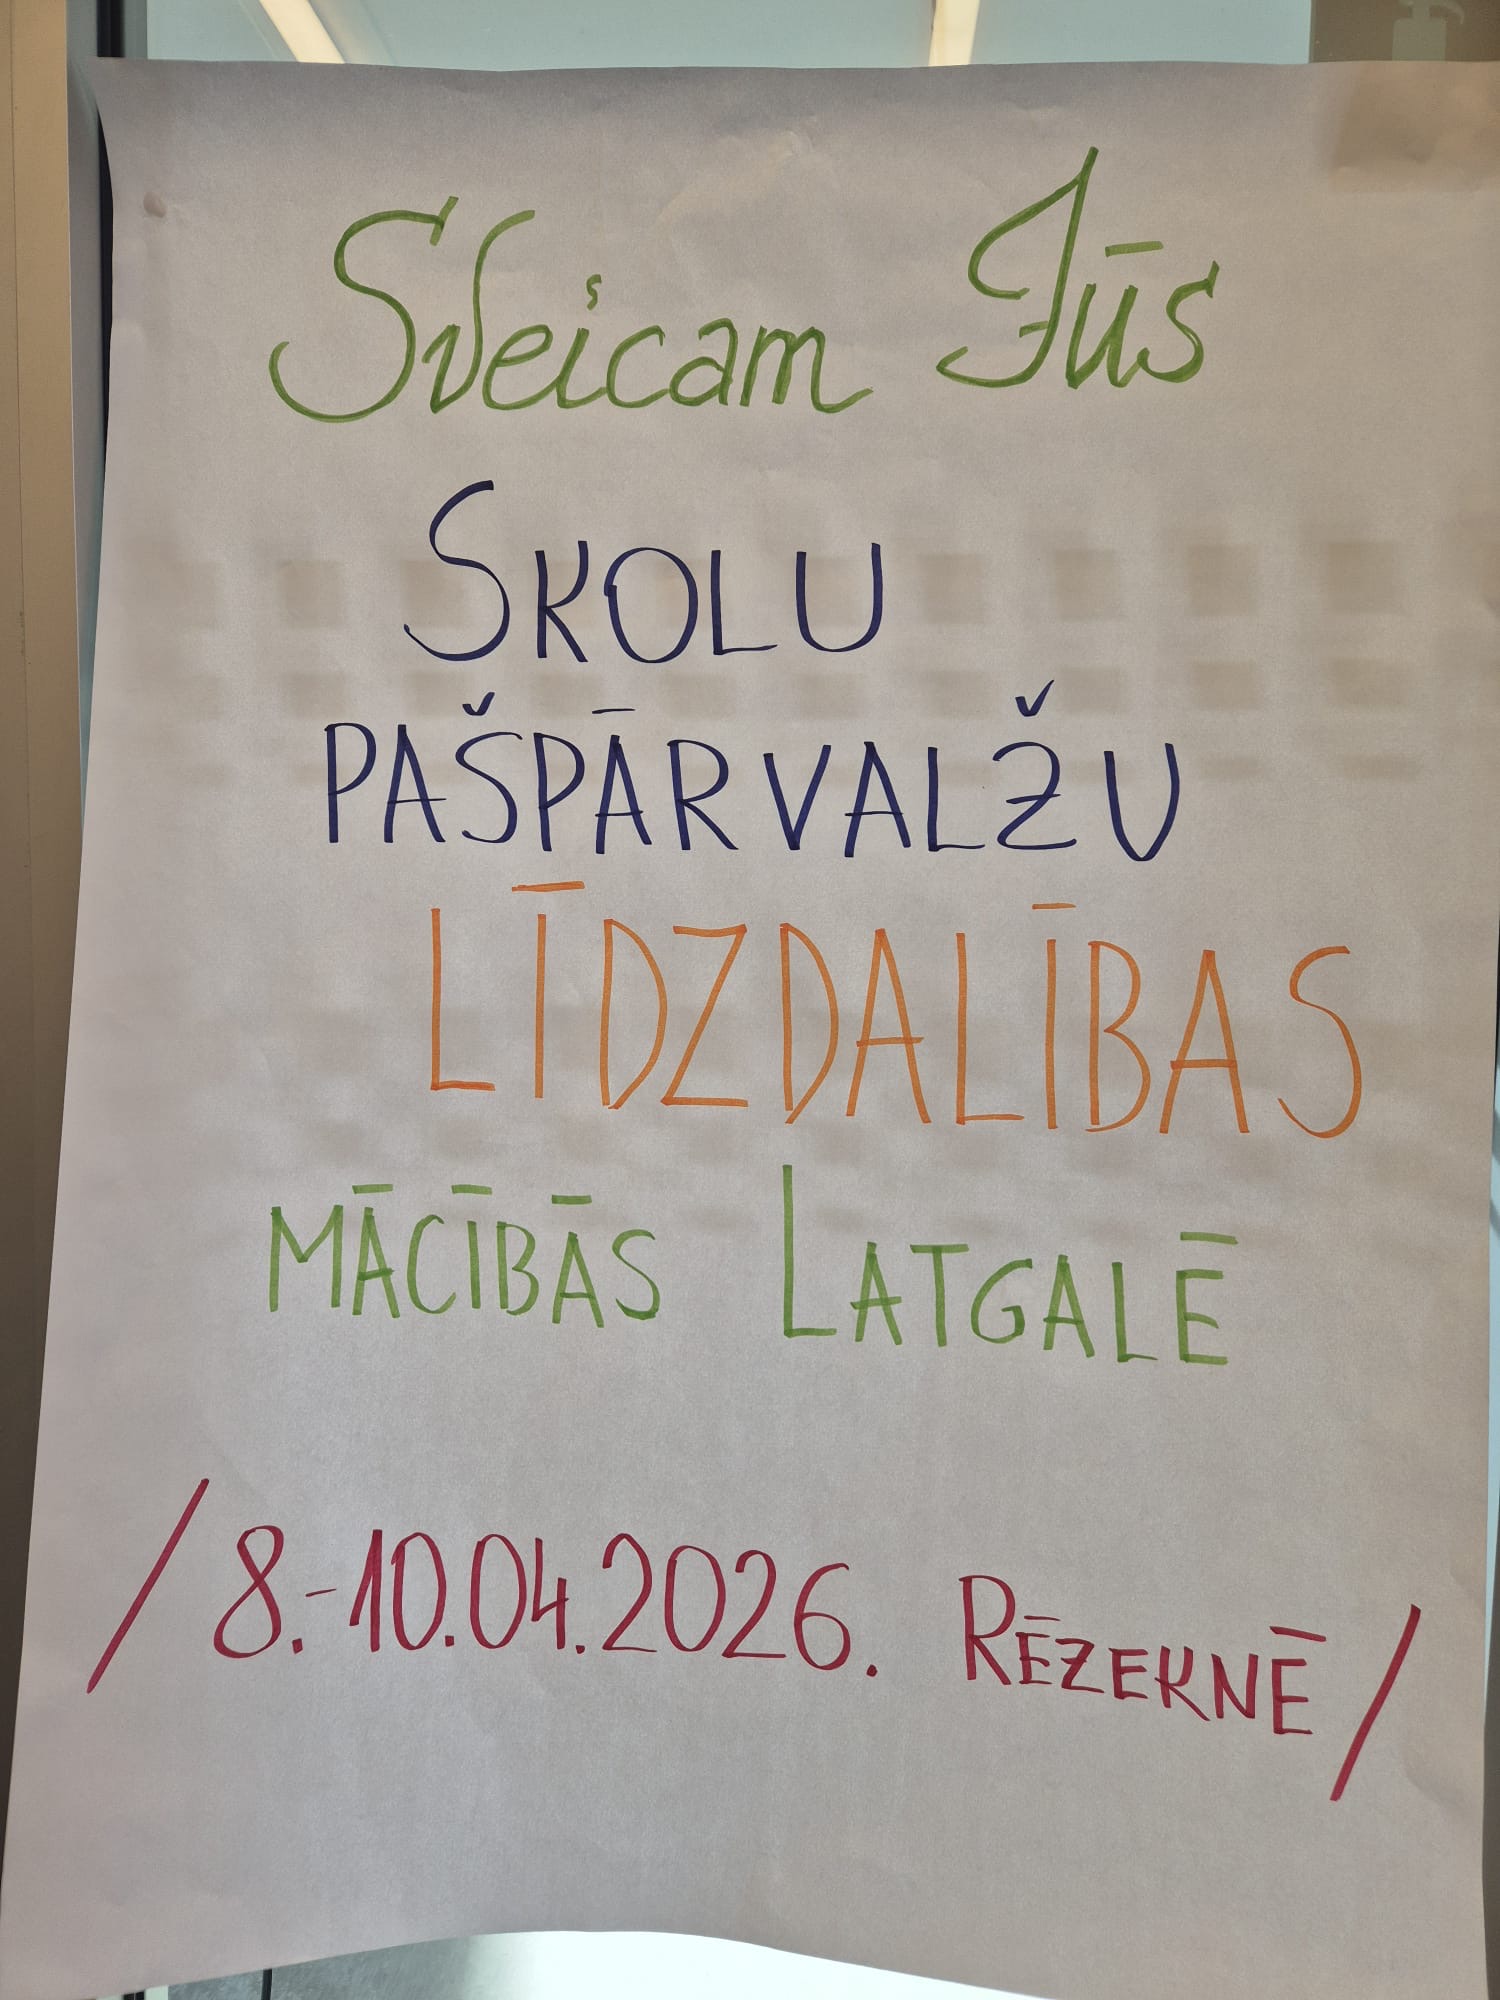 Sveicam Jūs
SKOLU
PAŠPĀRVALŽU
LĪDZDALĪBAS
MĀCĪBĀS LATGALĒ
/8.-10.04.2026. RĒZEKNĒ/